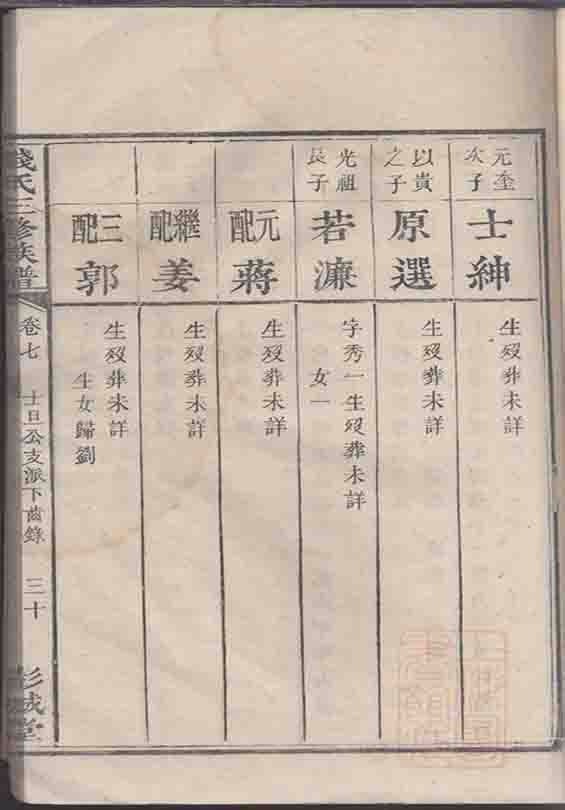 元奎次子
士紳
生歿葬未詳
以貴之子
原選
生歿葬未詳
光祖長子
若濂
字秀一生歿葬未詳
女一
元配蔣
生歿葬未詳
繼配姜
生歿葬未詳
三配郭
生歿葬未詳
生女歸劉
錢氏三修族譜
卷七
士旦公支派下齒錄
三十
彭城堂